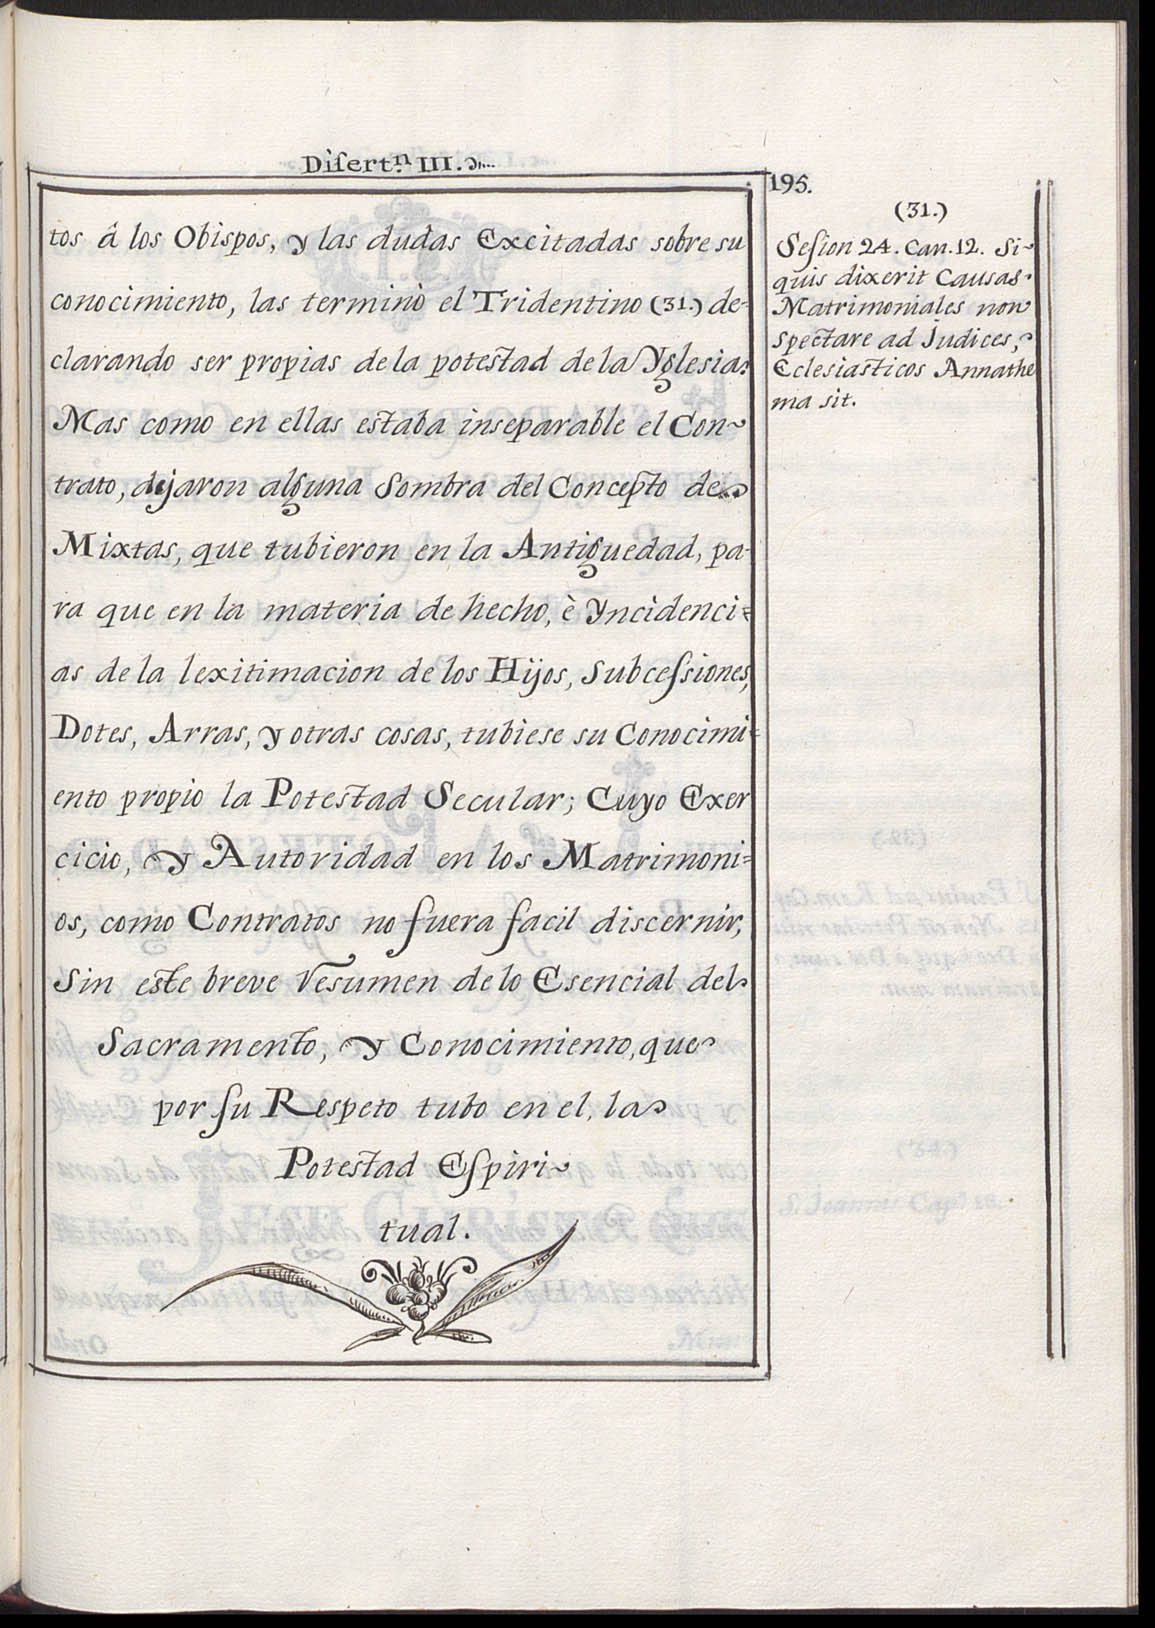 Disert.n III.
195.
tos â los Obispos, y las dudas Excitadas sobre su
conocimiento, las terminò el Tridentino (31.) de-
clarando ser propias de la potestad de la Yglesia:
Mas como en ellas estaba inseparable el Con~
trato, dejaron alguna Sombra del Concepto de
Mixtas, que tubieron en la Antiguedad, pa-
ra que en la materia de hecho, è Yncidenci=
as de la lexitimacion de los Hijos, Subcesiones,
Dotes, Arras, y otras cosas, tubiese su Conocimi=
ento propio la Potestad Secular; Cuyo Exer
cicio, y Autoridad en los Matrimoni=
os, como Contratos no fuera facil discernir,
Sin este breve Resumen de lo Esencial del
Sacramento, y Conocimiento, que
por su Respeto tubo en el, la
Potestad Espiri~
tual.
(31.)
Sesion 24. Can. 12. Si~
quis dixerit Causas
Matrimoniales non
spectare ad Judices,
Eclesiasticos Annathe
ma sit.